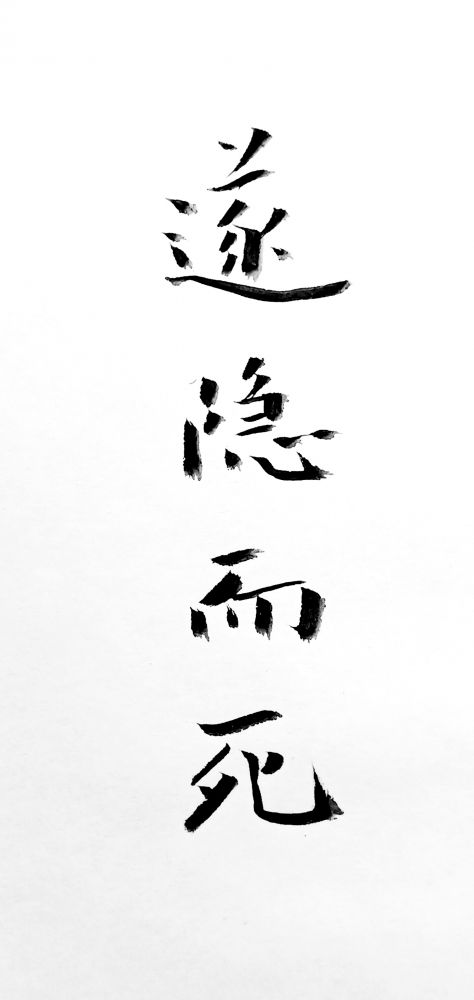 遂隐而死